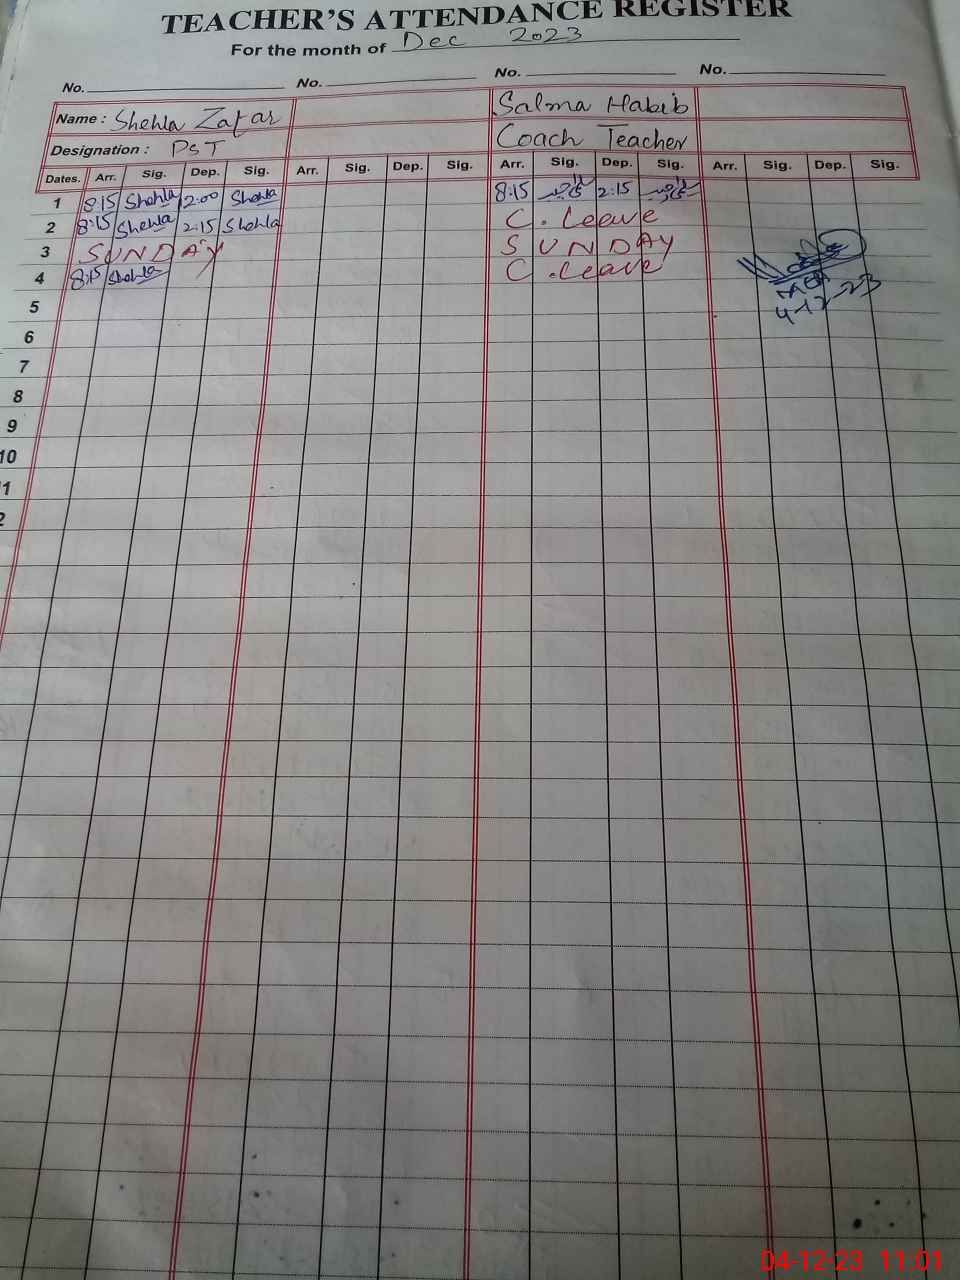 TEACHER'S ATTENDANCE REGISTER
For the month of Dec 2023
No. No. No. No.
Name : Shehla Zafar Salma Habib
Designation : PST Coach Teacher
Dates. Arr. Sig. Dep. Sig. Arr. Sig. Dep. Sig. Arr. Sig. Dep. Sig. Arr. Sig. Dep. Sig.
1 8:15 Shehla 12:00 Shehla 8:15 2:15
2 8:15 Shehla 2:15 Shehla C. Leave
3 SUNDAY SUNDAY
4 8:15 Shehla C. leave
5 4-12-23
6
7
8
9
10
11
2
04-12-23 11:01